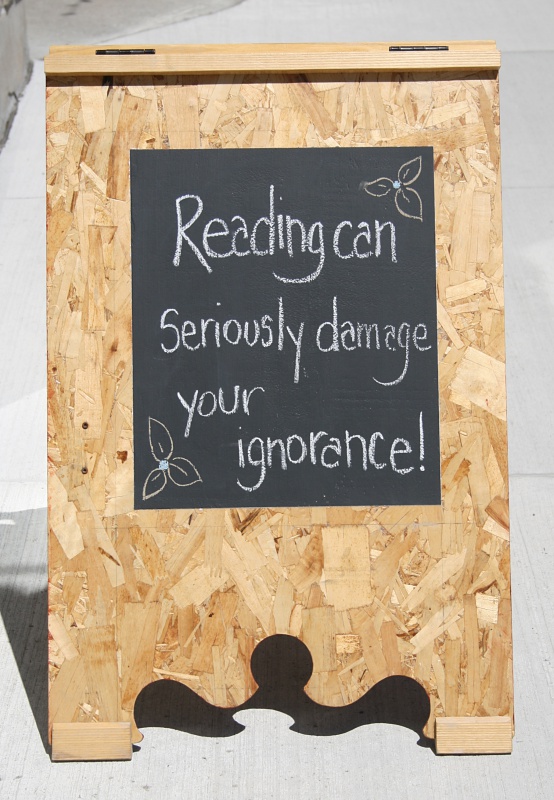 Reading can
Seriously damage
your
ignorance!